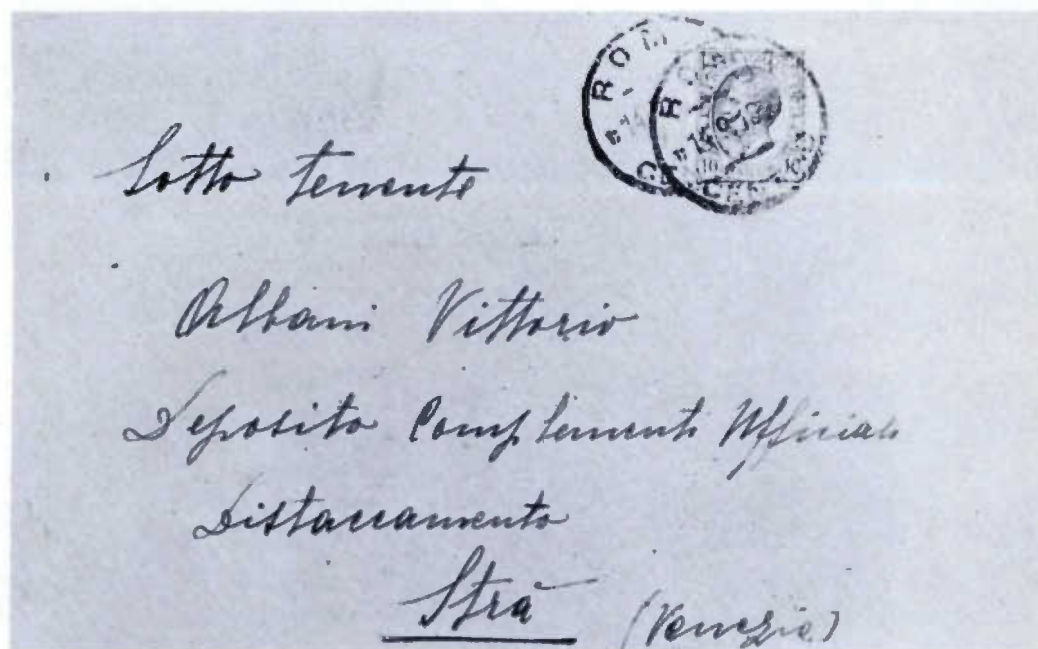 ROM
RO
CENTRO
Sotto tenente
Albani Vittorio
Deposito Complementi Ufficiali
Distaccamento
Strà (Venezia)